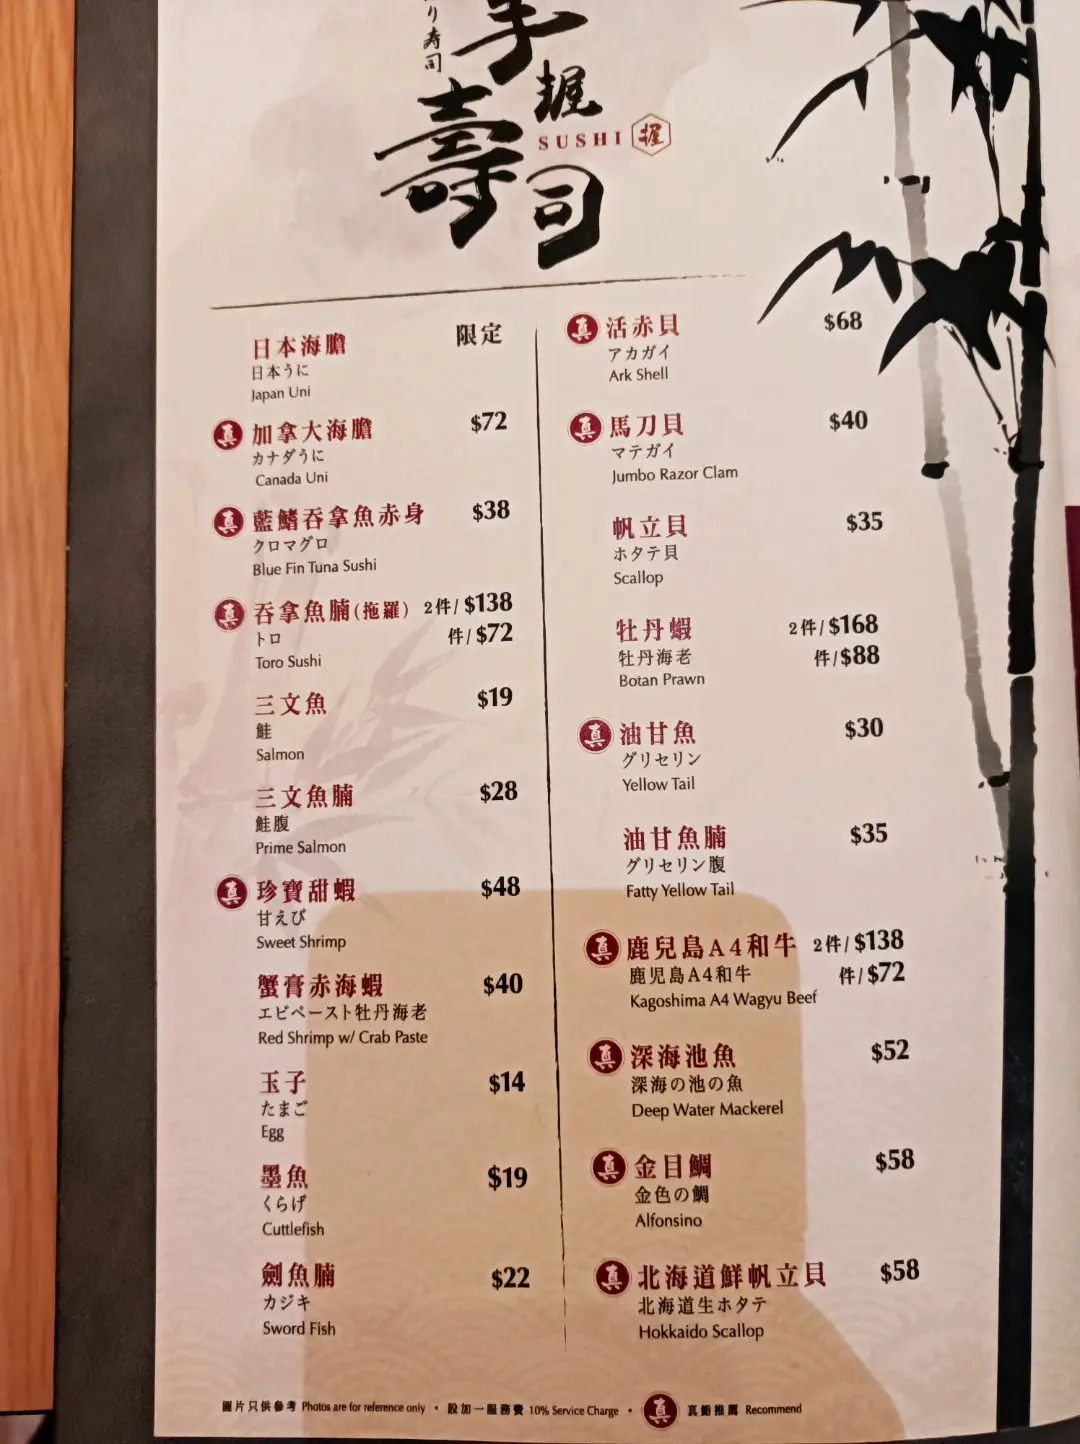 り寿司
手握
壽司
SUSHI 握
日本海膽 限定
日本うに
Japan Uni
真 加拿大海膽 $72
カナダうに
Canada Uni
真 藍鰭吞拿魚赤身 $38
クロマグロ
Blue Fin Tuna Sushi
真 吞拿魚腩(拖羅) 2件/$138
トロ 件/$72
Toro Sushi
三文魚 $19
鮭
Salmon
三文魚腩 $28
鮭腹
Prime Salmon
真 珍寶甜蝦 $48
甘えび
Sweet Shrimp
蟹膏赤海蝦 $40
エビペースト牡丹海老
Red Shrimp w/ Crab Paste
玉子 $14
たまご
Egg
墨魚 $19
くらげ
Cuttlefish
劍魚腩 $22
カジキ
Sword Fish
真 活赤貝 $68
アカガイ
Ark Shell
真 馬刀貝 $40
マテガイ
Jumbo Razor Clam
帆立貝 $35
ホタテ貝
Scallop
牡丹蝦 2件/$168
牡丹海老 件/$88
Botan Prawn
真 油甘魚 $30
グリセリン
Yellow Tail
油甘魚腩 $35
グリセリン腹
Fatty Yellow Tail
真 鹿兒島A4和牛 2件/$138
鹿児島A4和牛 件/$72
Kagoshima A4 Wagyu Beef
真 深海池魚 $52
深海の池の魚
Deep Water Mackerel
真 金目鯛 $58
金色の鯛
Alfonsino
真 北海道鮮帆立貝 $58
北海道生ホタテ
Hokkaido Scallop
圖片只供參考 Photos are for reference only • 設加一服務費 10% Service Charge • 真 真鮨推薦 Recommend